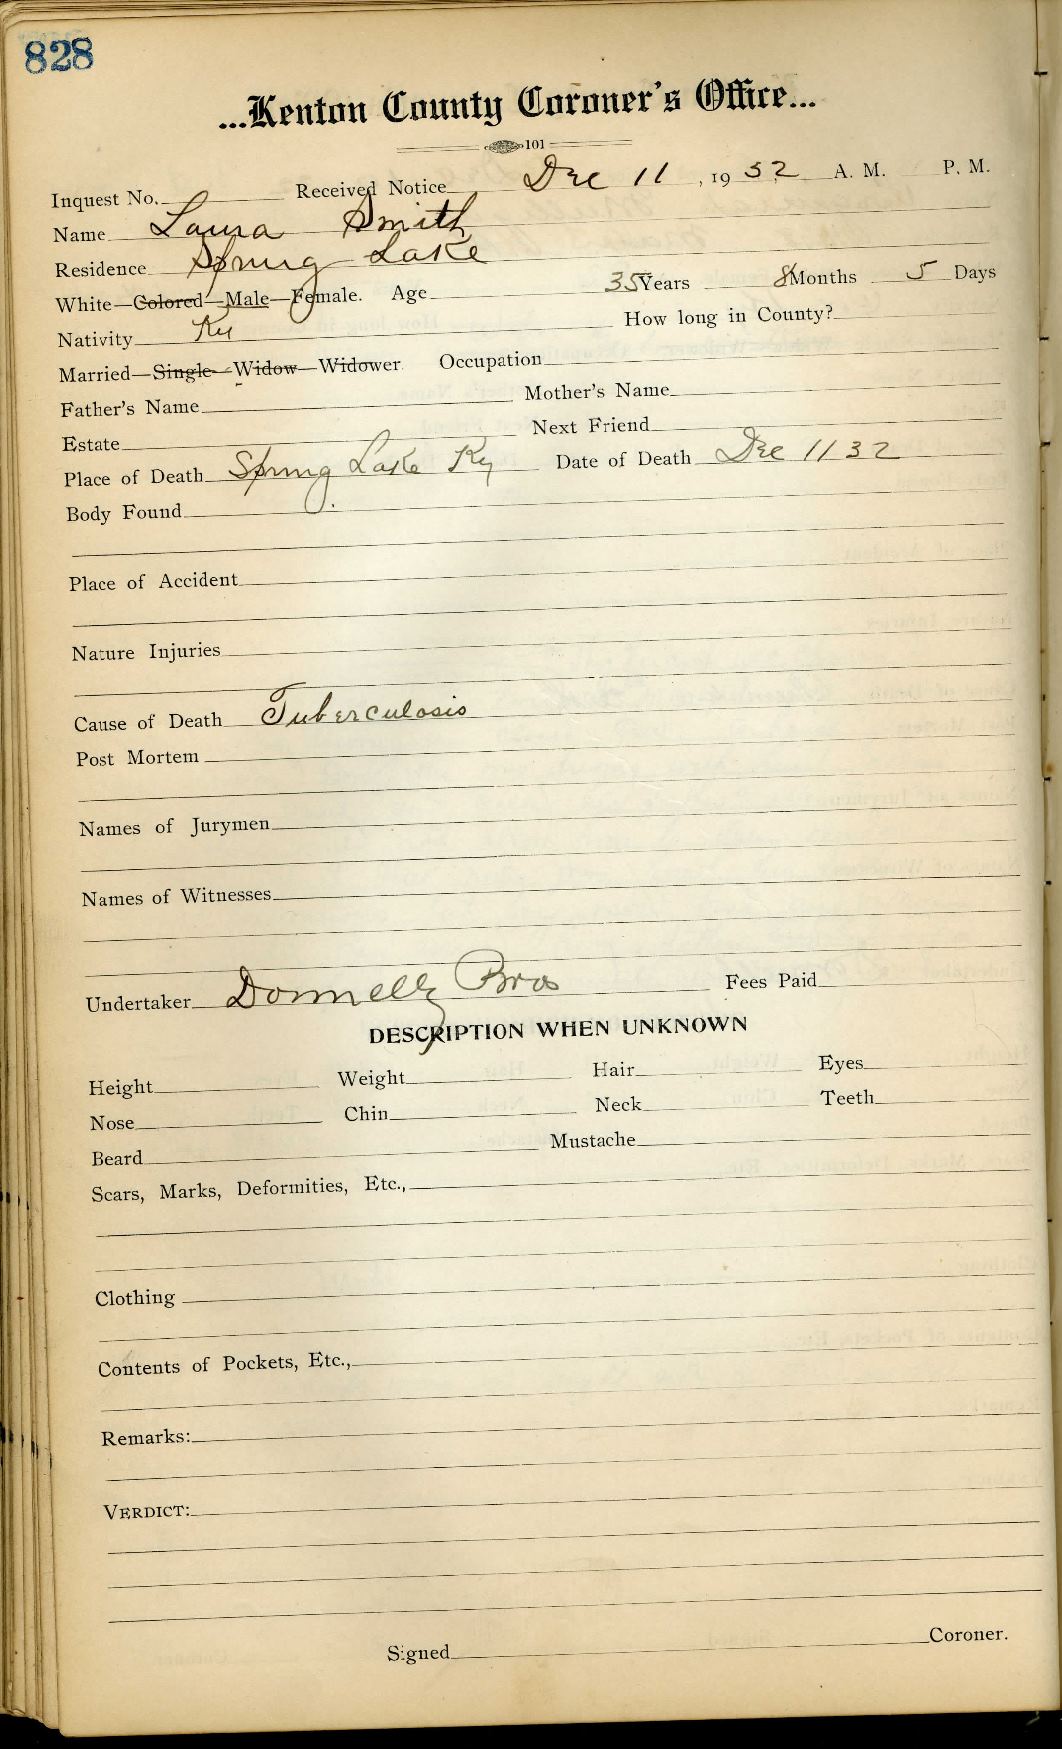 828
...Kenton County Coroner's Office...
101
Inquest No. Received Notice Dec 11, 1932 A. M. P. M.
Name Laura Smith
Residence Spring Lake
White—Colored—Male—Female. Age 35 Years 8 Months 5 Days
Nativity Ky How long in County?
Married—Single—Widow—Widower Occupation
Father's Name Mother's Name
Estate Next Friend
Place of Death Spring Lake Ky Date of Death Dec 11 32
Body Found
Place of Accident
Nature Injuries
Cause of Death Tuberculosis
Post Mortem
Names of Jurymen
Names of Witnesses
Undertaker Donnelly Bros Fees Paid
DESCRIPTION WHEN UNKNOWN
Height Weight Hair Eyes
Nose Chin Neck Teeth
Beard Mustache
Scars, Marks, Deformities, Etc.,
Clothing
Contents of Pockets, Etc.,
Remarks:
VERDICT:
Signed Coroner.